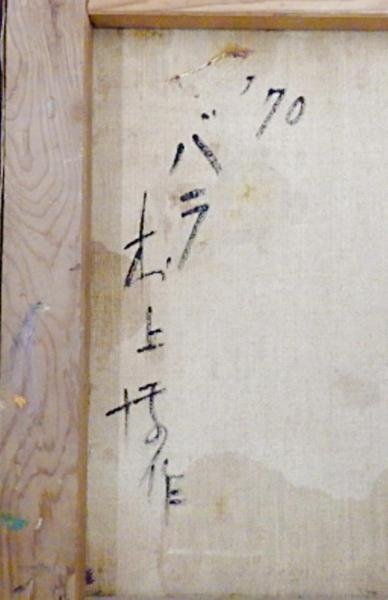 '70
バラ
村上博作